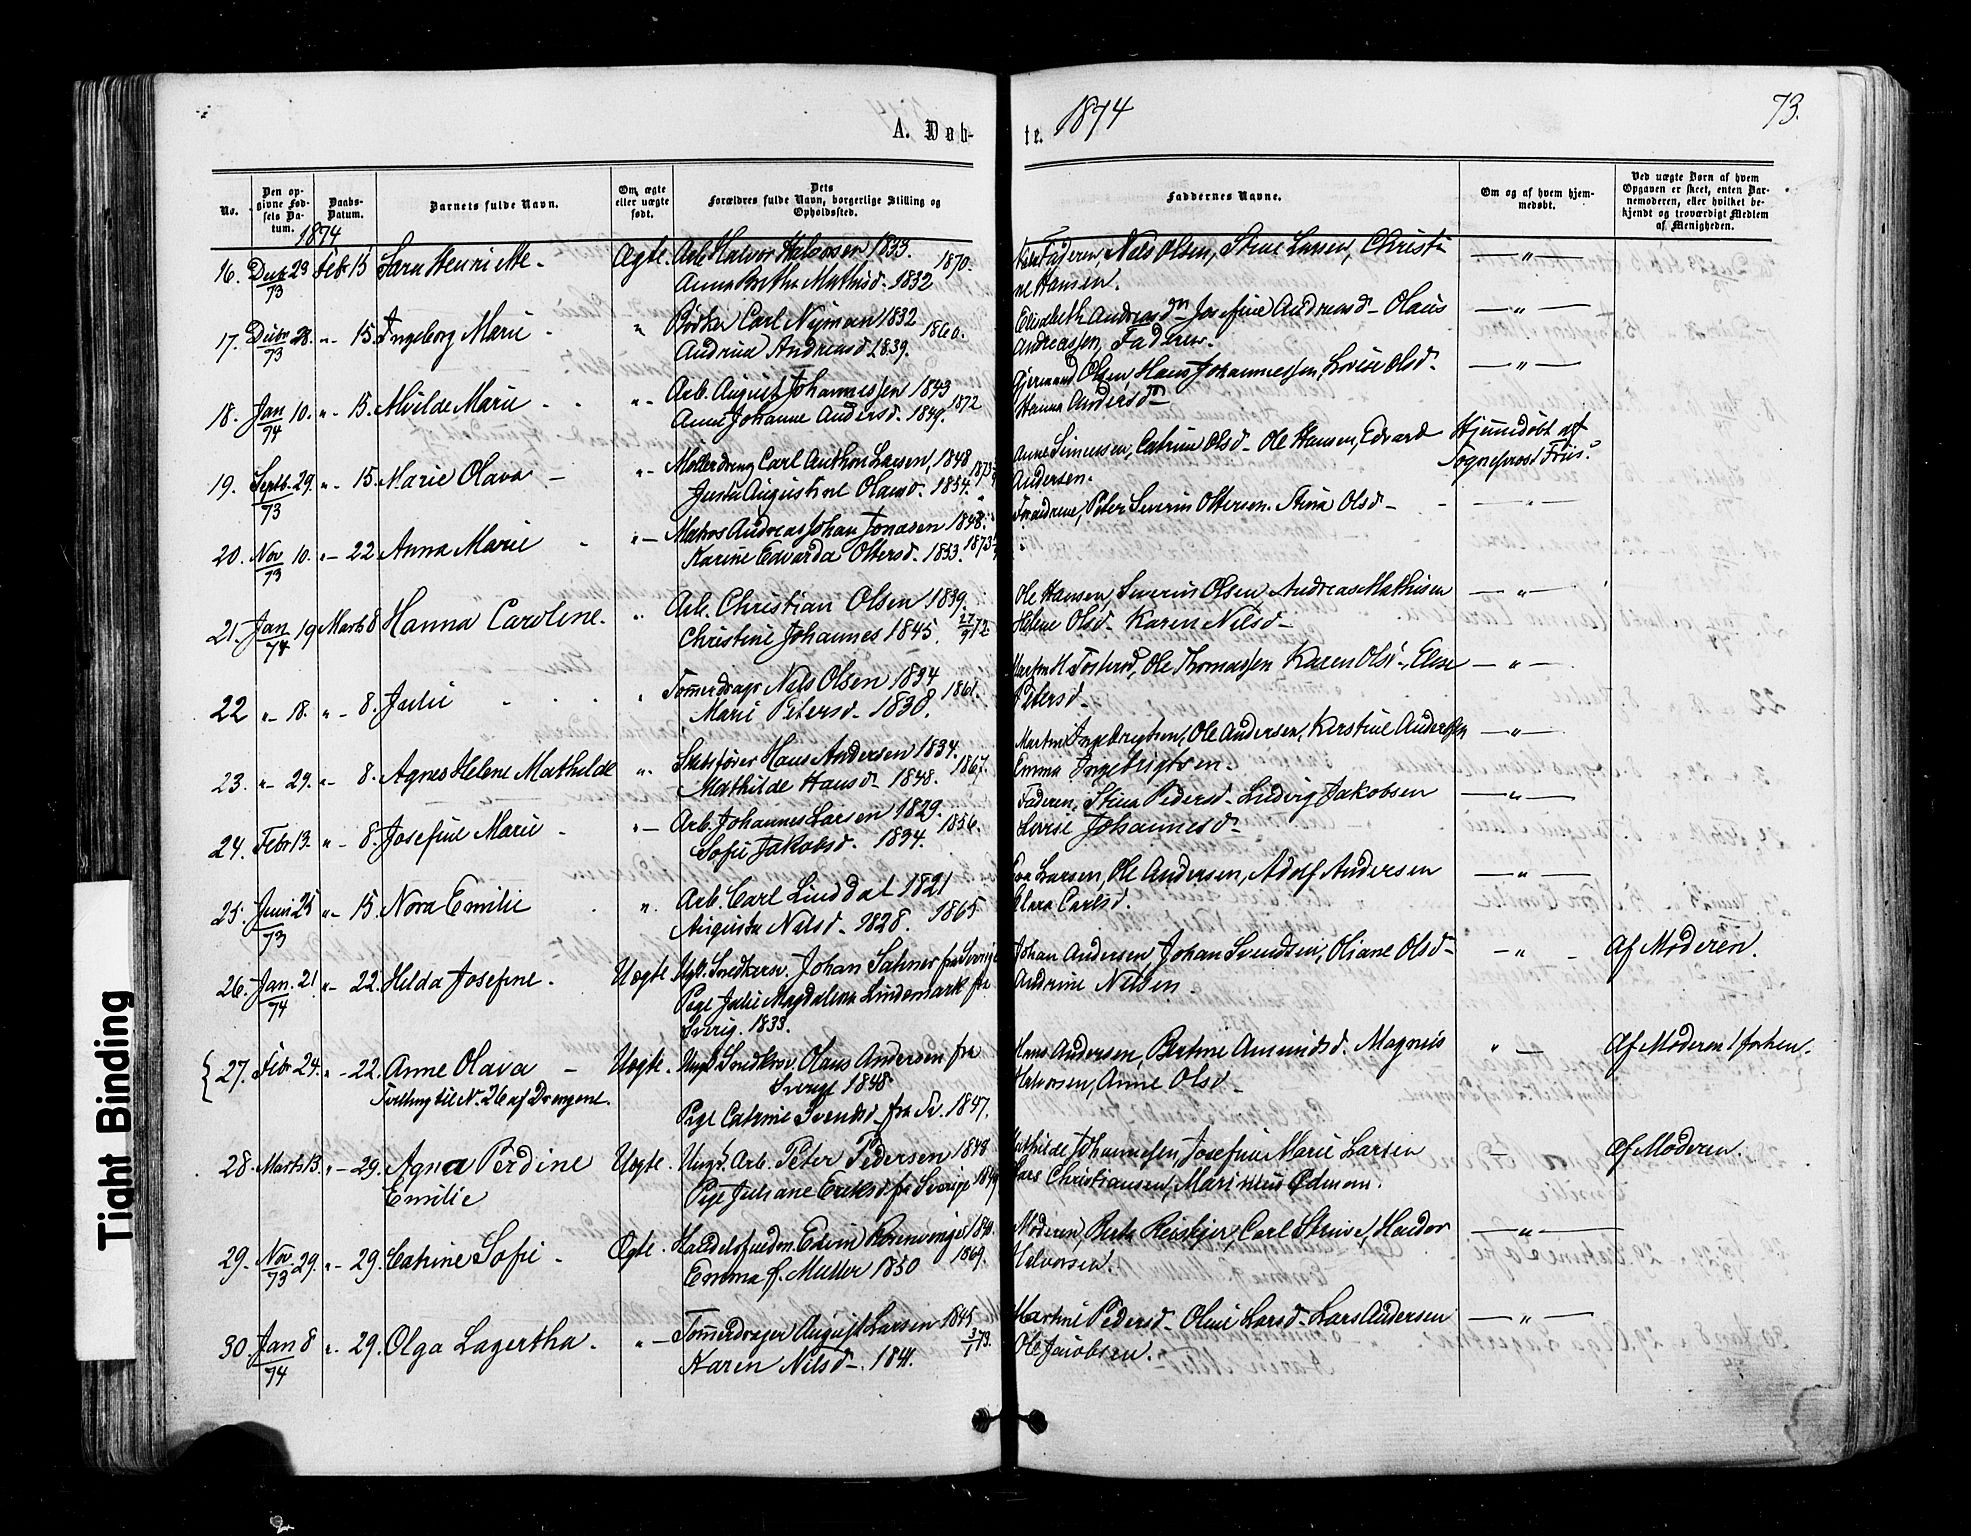 1874
73.
A. Døb-
te.
No.
Den opgivne Fødsels Datum.
Daabs-Datum.
Barnets fulde Navn.
Om ægte eller uægte født.
Dets Forældres fulde Navn, borgerlige Stilling og Opholdssted.
Faddernes Navne.
Om og af hvem hjemmedøbt.
Ved uægte Børn af hvem Opgaven er skeet, enten Barnemoderen, eller hvilket bekjendt og troværdigt Medlem af Menigheden.
1874
16. 23/73 Febr 15 Sara Henriette. Ægte. Arb. Halvor Halvorsen 1833. 1870. Faderen, Nels Olsen, Stine Larsen, Christi — „ —
Anna Bertha Mathisd. 1832 ne Hansen.
17. 28./73 „ - 15. Ingeborg Marie „ Bødker Carl Nyman 1832 1860. Elisabeth Andreasdn Josefine Andreasd - Olaus — „ —
Andrine Andreasd 1839. Andreassen, Faderen.
18. Jan 10./74 „ - 15. Alvilde Marie „ - Arb. August Johannessen 1843 1872 Olsen, Hans Johannessen, Lovise Olsd. — „ —
Anne Johanne Andersd. 1849. Hanna Andersdn
19. Septb. 29./73 „ - 15. Marie Olava - „ - Møllerdreng Carl Anthon Larsen, 1848 Anne Simensen, Catrine Olsd - Ole Hansen, Edvard Hjemmedøbt af
Augustine Olausd. 1854. Andersen. Sogneprest Friis.
20. Nov 10./73 „ - 22 Anna Marie „ - Matros Andreas Johan Jonasen 1848. Forældrene, Peter Severin Ottersen. Stina Olsd - „
Karine Edvarda Ottersd. 1853. 1873
21. Jan 19/74 Marts 8 Hanna Caroline. „ Arb. Christian Olsen 1839. Ole Hansen, Severin Olsen Andreas Mathisen — „ —
Christine Johannes 1845. 27/9 72 Helene Olsd - Karen Nilsd -
22 „ - 18. „ - 8. Julie „ Tømmerdrager Nils Olsen 1834 1861. Ole Thomassen Karen Olsd -, Else — „ —
Marie Petersd - 1838. Petersd -
23. „ - 29. „ - 8. Agnes Helene Mathilde „. Hans Andersen 1834. 1867. Martin Ingebrigtsen, Ole Andersen, Kerstine Andersen — „ —
Mathilde Hansd - 1848. Emma Ingebrigtsen -
24. Febr 13. „ - 8. Josefine Marie - „ - Arb. Johannes Larsen 1829. 1856. Faderen, Stina Pedersd - Ludvig Jakobsen — „ —
Sofie Jakobsd. 1834. Lovise Johannesd -
25. Juni 25/73 „ - 15. Nora Emilie „. Arb. Carl Linddal 1821 1865 Larsen, Ole Andersen, Adolf Andersen — „ —
Augusta Nilsd - 1828. Clara Carlsd.
26. Jan. 21/74 „ - 22. Hilda Josefine. Uægte. Johan fra Sverige Johan Andersen, Johan Svendsen, Oliane Olsd - - „ - Af Moderen.
Pige Julie Magdalena Lindemark fra Andrine Nilsen -
Sverig. 1833.
27. Febr 24. „ - 22. Anne Olava - Uægte. Olaus Andersen fra Hans Andersen, Bertine Amundsd. Magnus „ - Af Moderen
Tvilling til N. 26 af Drengene. Sverige 1848 Halvorsen, Anne Olsd -
Pige Catrine Svendsd - fra Sv. 1847.
28. Marts 13. „ - 29. Agna Perdine Uægte. Ungk. Arb. Peter Pedersen 1848 Mathilde Johannessen, Josefine Marie Larsen - Af Moderen.
Emilie Pige Juliane Eriksd fr Sverige Lars Christiansen, Marinius Ødmon.
29. Nov 29./73 „ - 29. Catrine Sofie - Ægte. Edvin Rosenvinge 1869. Moderen, Carl Haldor — „ —
Emma f. Muller 1850 Halvorsen.
30 Jan 8/74 „ - 29. Olga Lagertha. „ - Tømmerdrager August Larsen 1845 3/1 73. Martine Pedersd - Oline Larsd - Lars Andersen — „ —
Karen Nilsd -. 1841. Ole Jacobsen.
Tight Binding